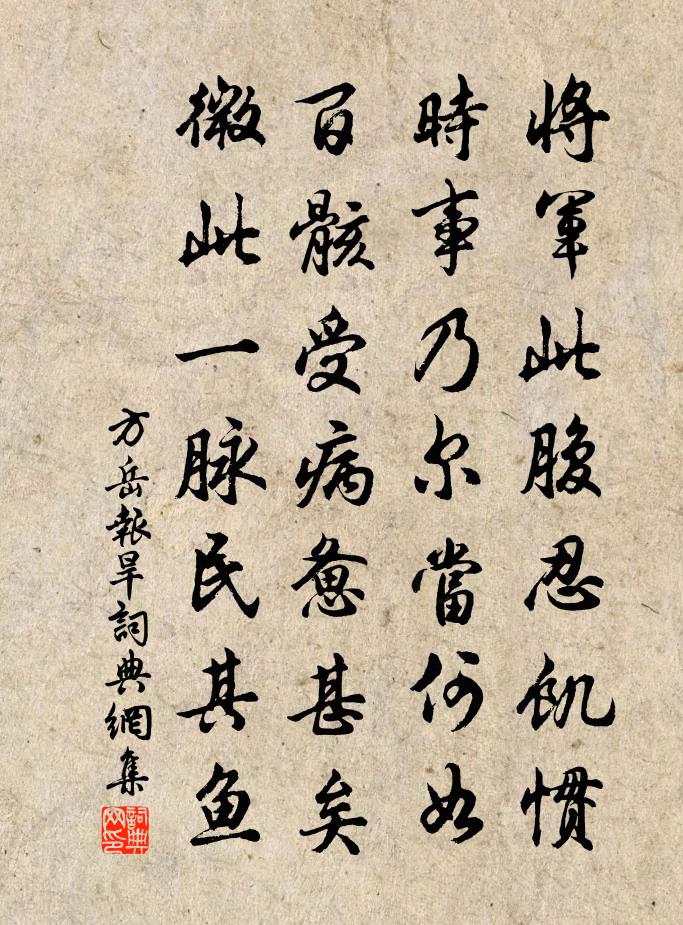 將軍此腹忍飢慣
時事乃尔當何如
百骸受病惫甚矣
微此一脉民其鱼
方岳報旱詞典網集
詞典网印